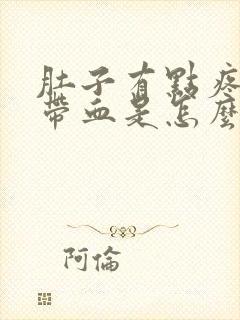 肚子有點疼
帶血是怎麼
阿倫